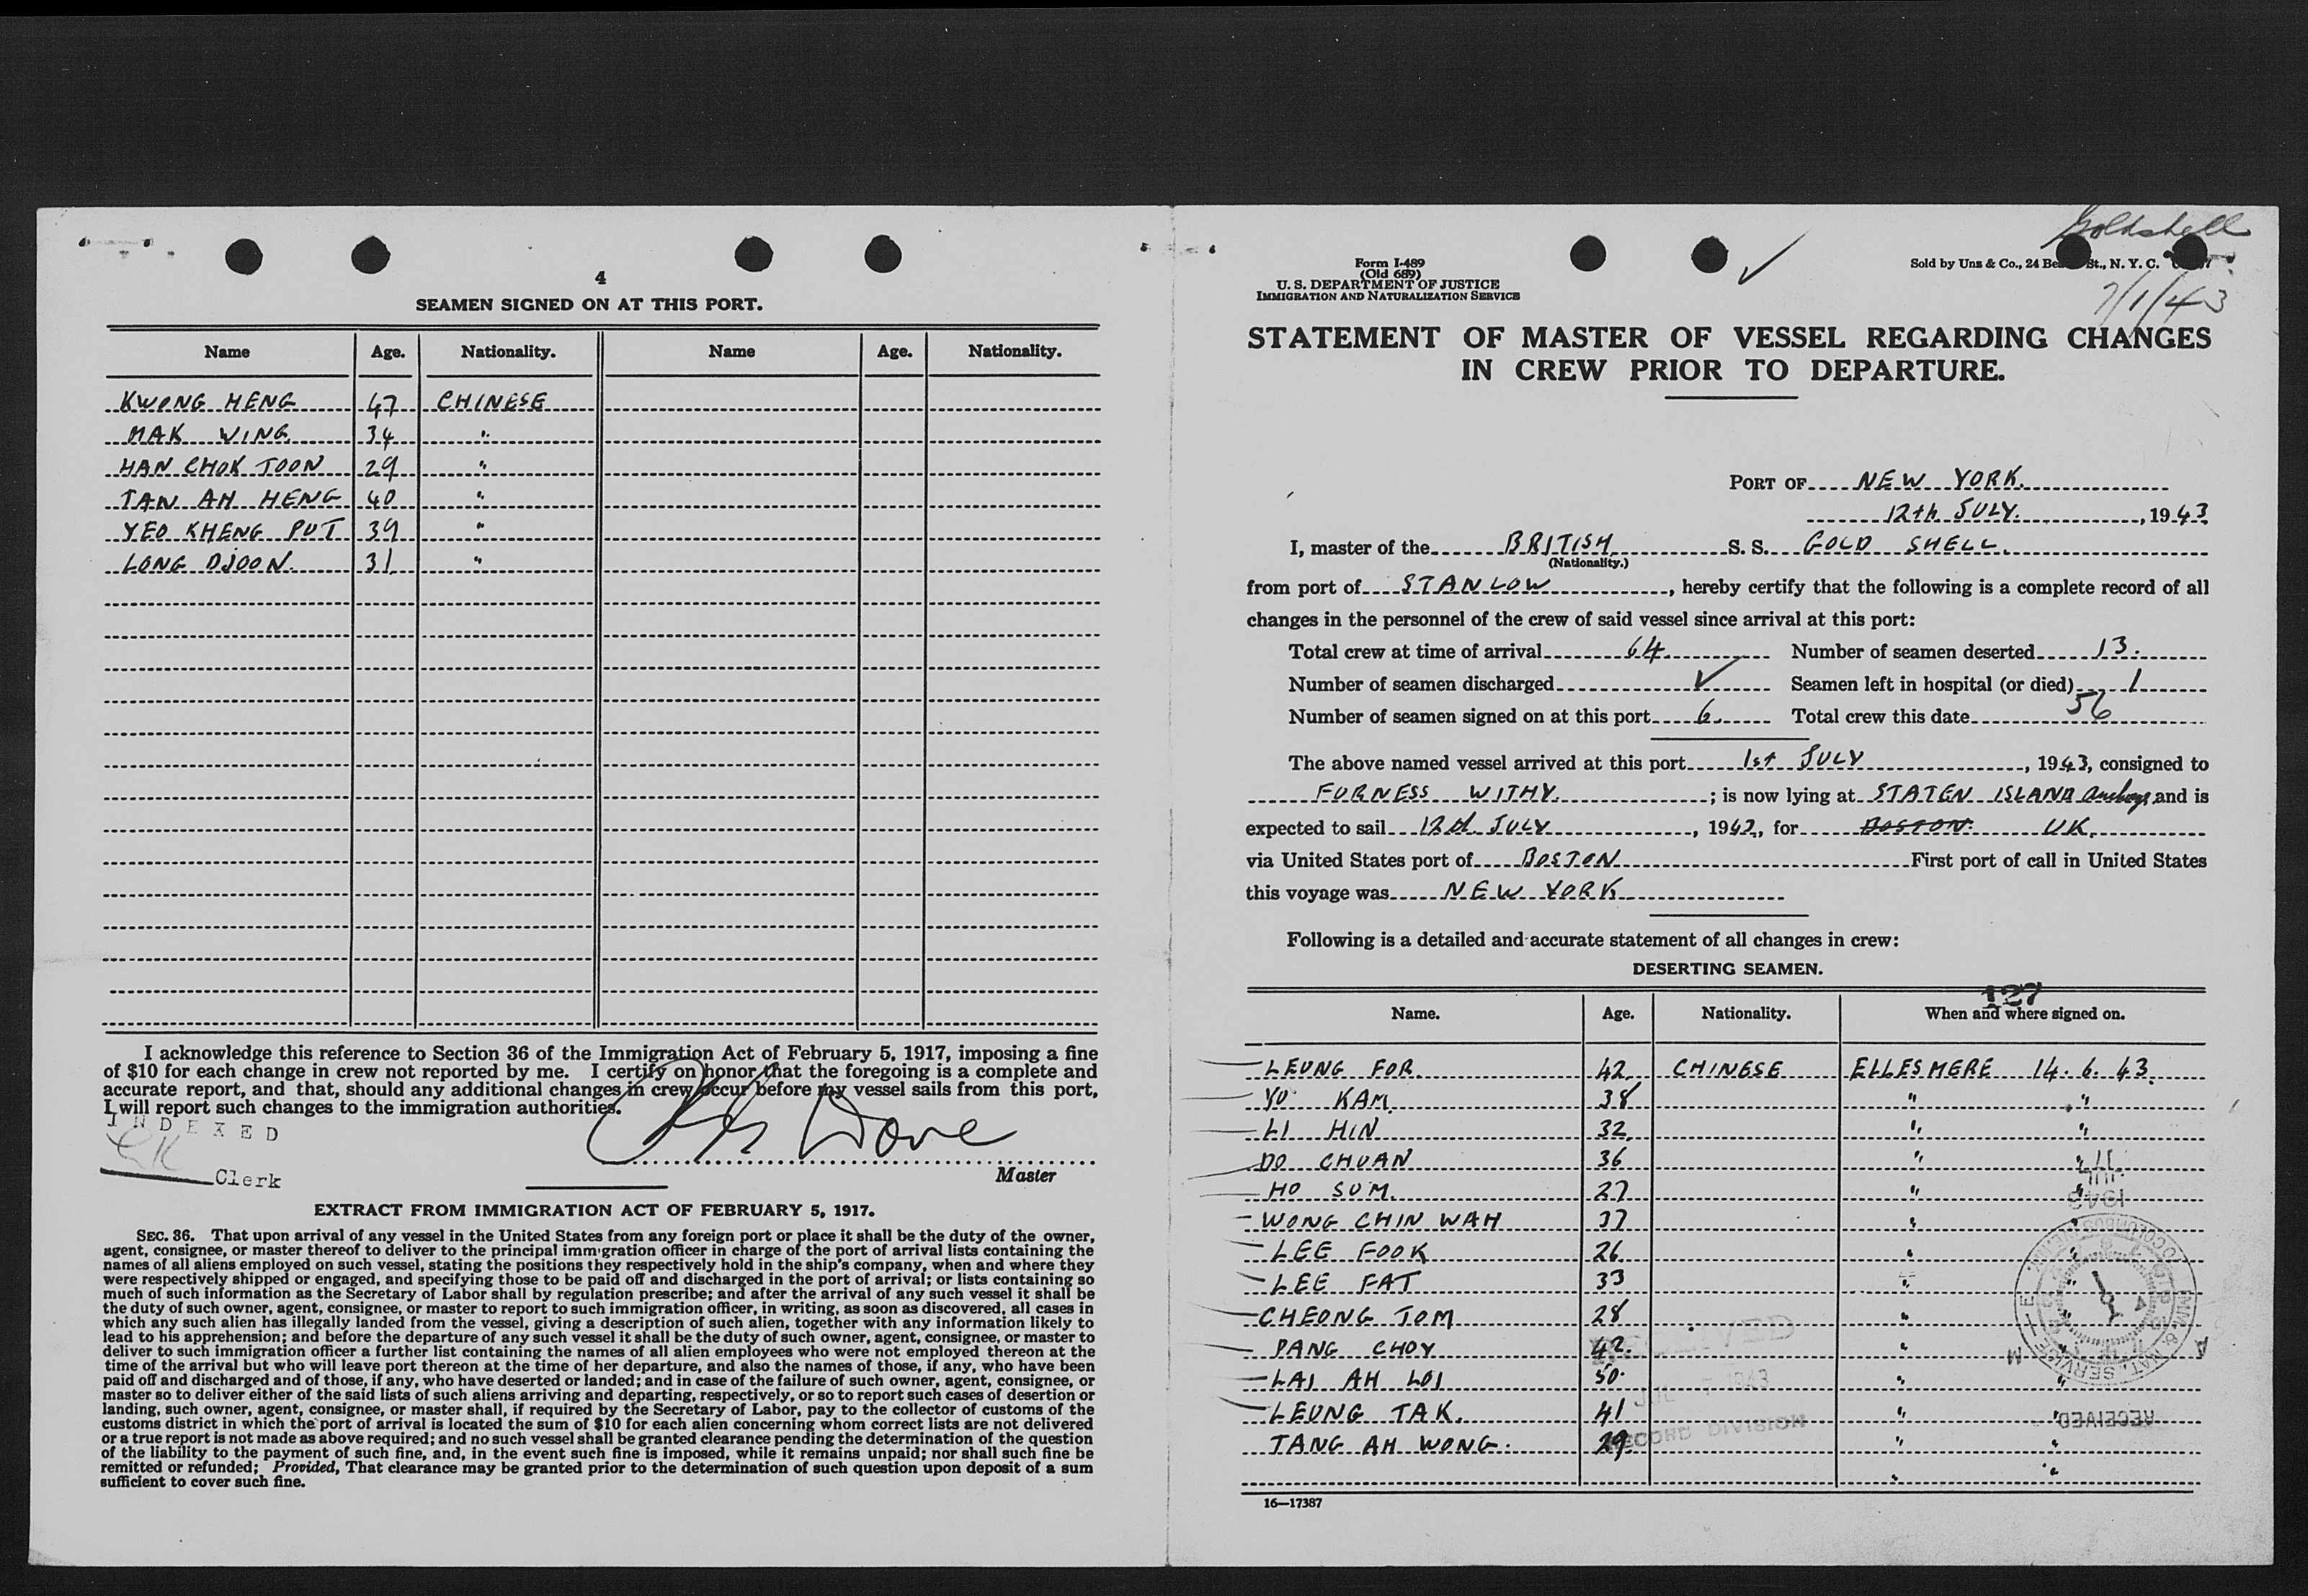 4
SEAMEN SIGNED ON AT THIS PORT.
Name Age. Nationality. Name Age. Nationality.
KWONG HENG 47 CHINESE
MAK WING 34 "
HAN CHOK TOON 29 "
TAN AH HENG 40 "
YEO KHENG PUT 39 "
LONG DJOON. 31 "
I acknowledge this reference to Section 36 of the Immigration Act of February 5, 1917, imposing a fine
of $10 for each change in crew not reported by me. I certify on honor that the foregoing is a complete and
accurate report, and that, should any additional changes in crew occur before my vessel sails from this port,
I will report such changes to the immigration authorities.
INDEXED
Dove
Clerk
Master
EXTRACT FROM IMMIGRATION ACT OF FEBRUARY 5, 1917.
SEC. 36. That upon arrival of any vessel in the United States from any foreign port or place it shall be the duty of the owner,
agent, consignee, or master thereof to deliver to the principal immigration officer in charge of the port of arrival lists containing the
names of all aliens employed on such vessel, stating the positions they respectively hold in the ship's company, when and where they
were respectively shipped or engaged, and specifying those to be paid off and discharged in the port of arrival; or lists containing so
much of such information as the Secretary of Labor shall by regulation prescribe; and after the arrival of any such vessel it shall be
the duty of such owner, agent, consignee, or master to report to such immigration officer, in writing, as soon as discovered, all cases in
which any such alien has illegally landed from the vessel, giving a description of such alien, together with any information likely to
lead to his apprehension; and before the departure of any such vessel it shall be the duty of such owner, agent, consignee, or master to
deliver to such immigration officer a further list containing the names of all alien employees who were not employed thereon at the
time of the arrival but who will leave port thereon at the time of her departure, and also the names of those, if any, who have been
paid off and discharged and of those, if any, who have deserted or landed; and in case of the failure of such owner, agent, consignee, or
master so to deliver either of the said lists of such aliens arriving and departing, respectively, or so to report such cases of desertion or
landing, such owner, agent, consignee, or master shall, if required by the Secretary of Labor, pay to the collector of customs of the
customs district in which the port of arrival is located the sum of $10 for each alien concerning whom correct lists are not delivered
or a true report is not made as above required; and no such vessel shall be granted clearance pending the determination of the question
of the liability to the payment of such fine, and, in the event such fine is imposed, while it remains unpaid; nor shall such fine be
remitted or refunded; Provided, That clearance may be granted prior to the determination of such question upon deposit of a sum
sufficient to cover such fine.
Goldshell
Form I-489
(Old 689)
U. S. DEPARTMENT OF JUSTICE
IMMIGRATION AND NATURALIZATION SERVICE
Sold by Uns & Co., 24 St., N. Y. C.
7/1/43
STATEMENT OF MASTER OF VESSEL REGARDING CHANGES
IN CREW PRIOR TO DEPARTURE.
PORT OF NEW YORK.
12th JULY. , 1943
I, master of the BRITISH S. S. GOLD SHELL.
(Nationality.)
from port of STANLOW , hereby certify that the following is a complete record of all
changes in the personnel of the crew of said vessel since arrival at this port:
Total crew at time of arrival 64 Number of seamen deserted 13.
Number of seamen discharged ✓ Seamen left in hospital (or died) 1
Number of seamen signed on at this port 6. Total crew this date 56
The above named vessel arrived at this port 1st JULY , 1943, consigned to
FURNESS WITHY. ; is now lying at STATEN ISLAND and is
expected to sail 12th JULY , 1942, for BOSTON. UK.
via United States port of BOSTON First port of call in United States
this voyage was NEW YORK
Following is a detailed and accurate statement of all changes in crew:
DESERTING SEAMEN.
127
Name. Age. Nationality. When and where signed on.
LEUNG FOR. 42 CHINESE ELLESMERE 14. 6. 43.
YU KAM. 38 " "
LI HIN 32. " "
DO CHUAN 36 " "
HO SUM. 27 " "
WONG CHIN WAH 37 " "
LEE FOOK 26 " "
LEE FAT 33 " "
CHEONG TOM 28 " "
PANG CHOY 42. " "
LAI AH LOI 50. " "
LEUNG TAK. 41 " "
TANG AH WONG. 29. " "
" "
JUL 1943
RECEIVED
RECEIVED
JUL 7 1943
RECORD DIVISION
16—17387